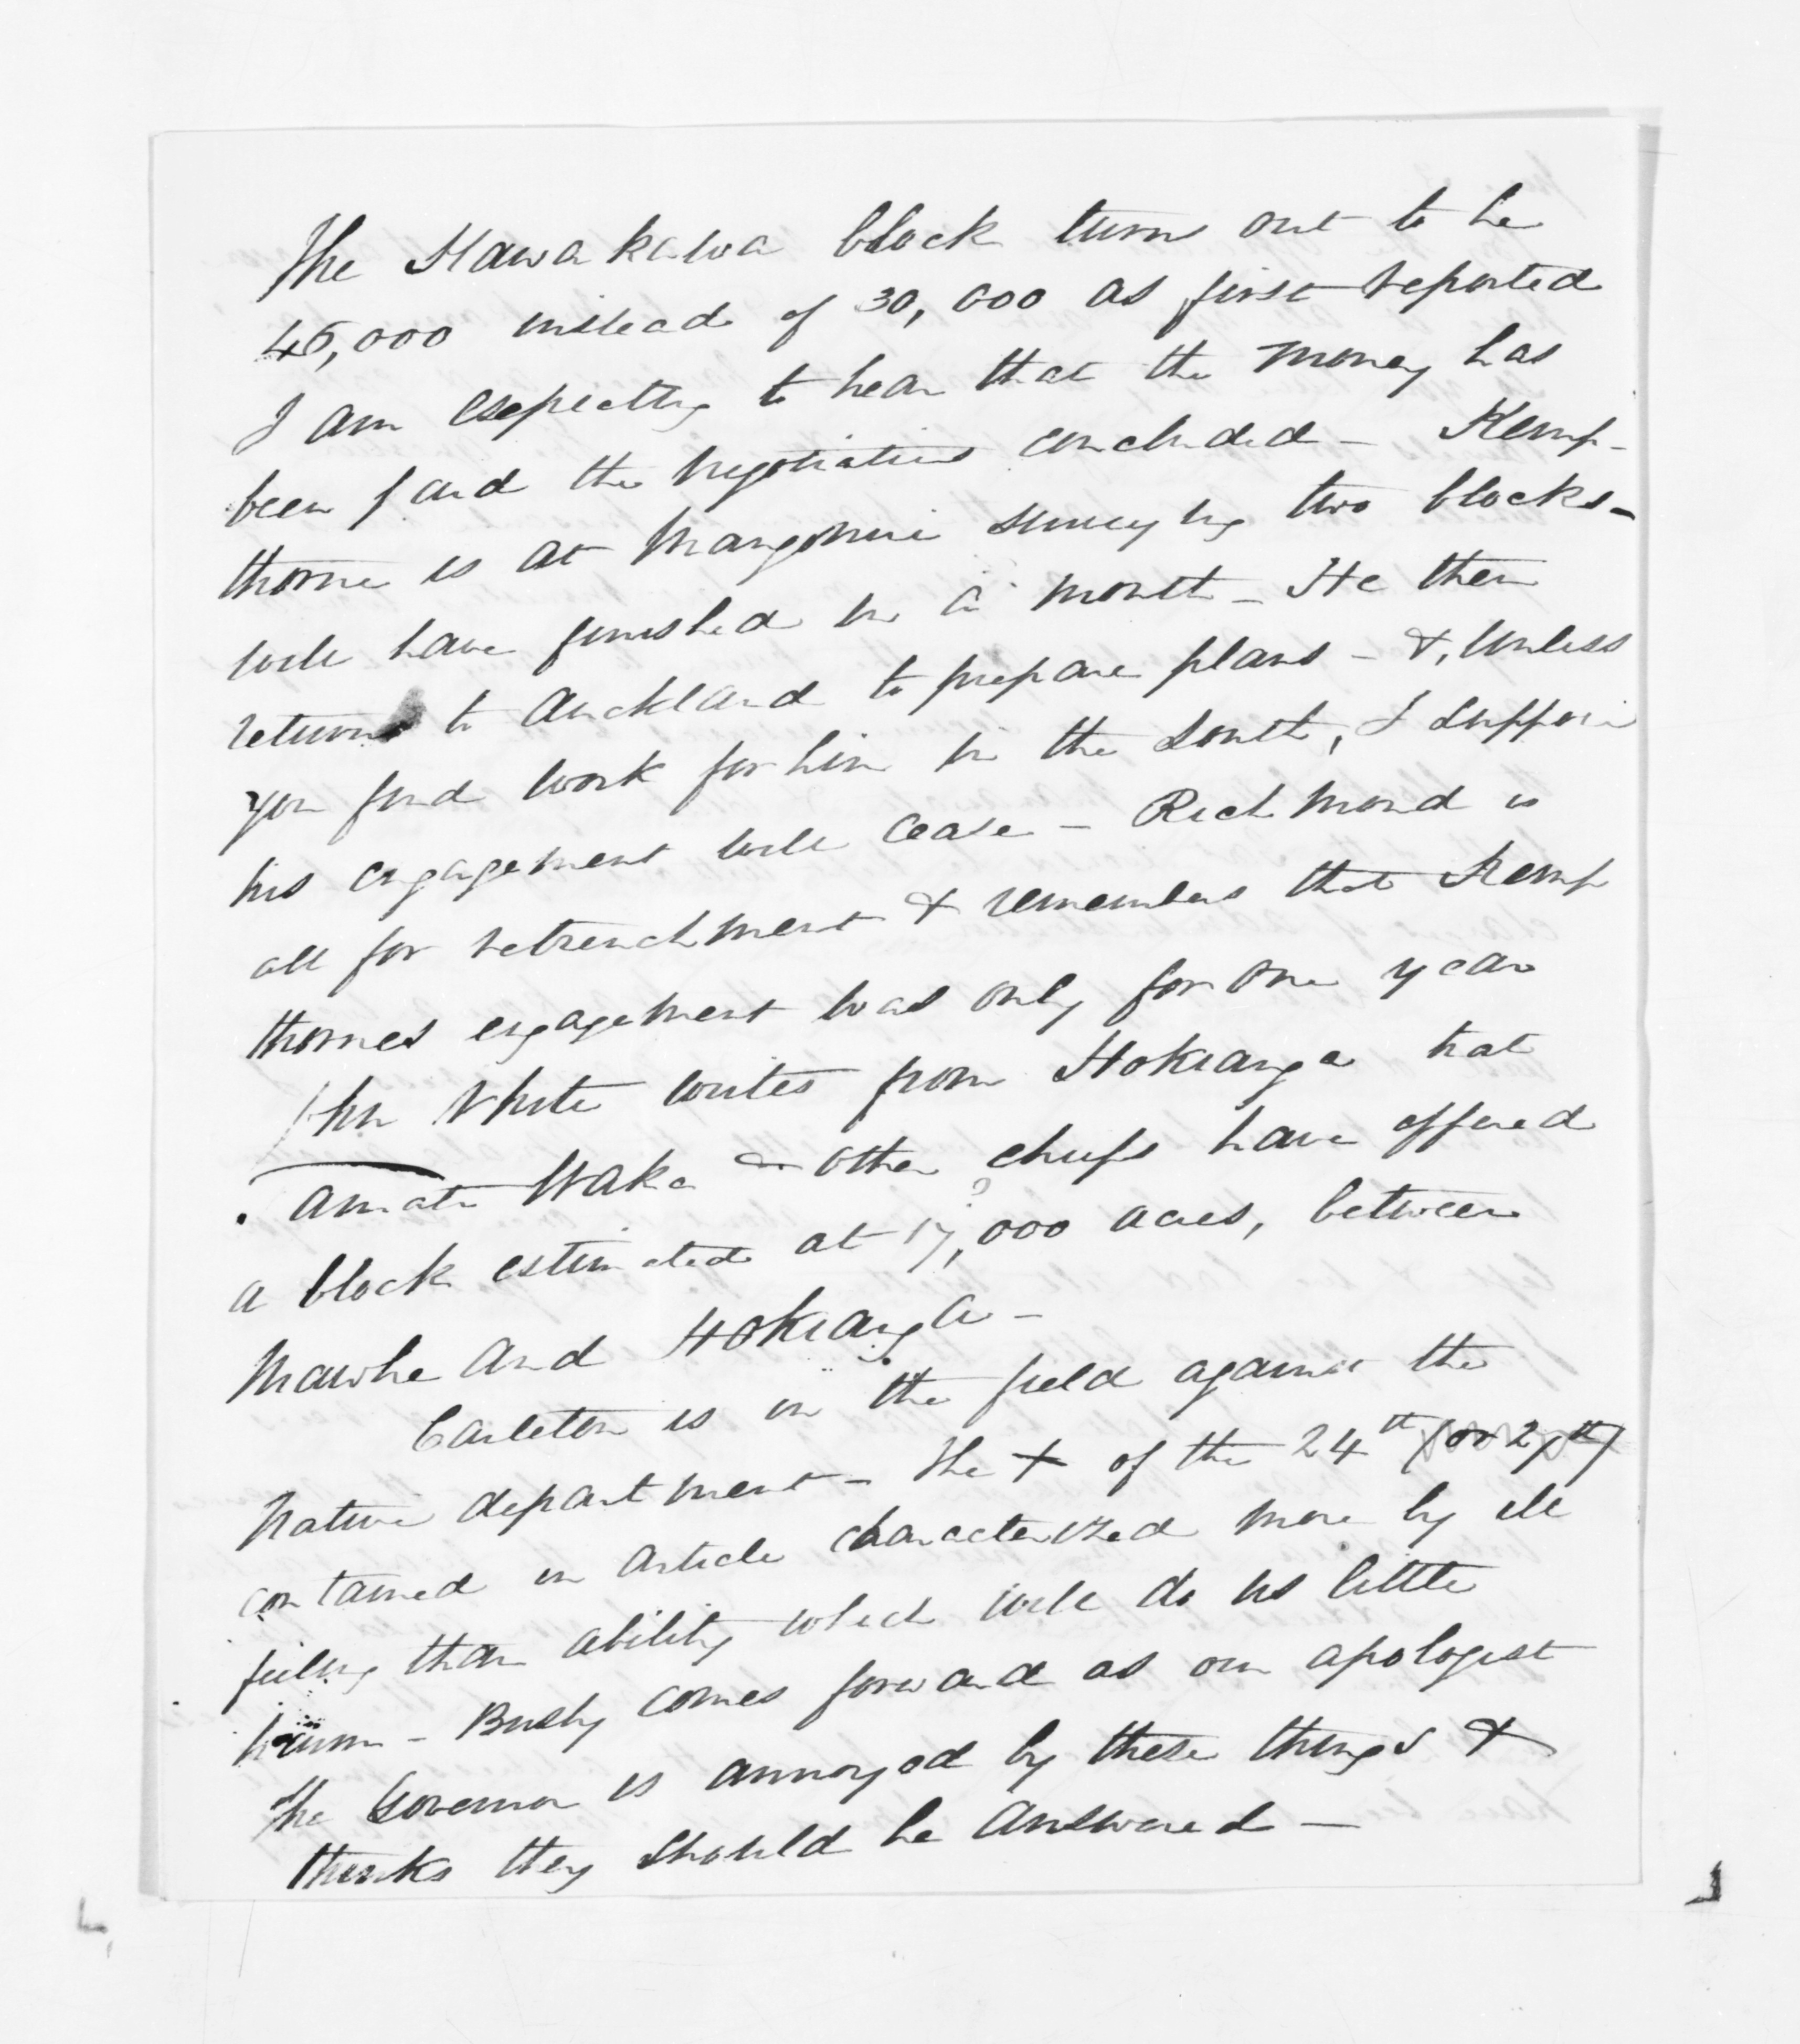 The Kawakawa block turns out to be
46,000 instead of 30,000 as first reported
I am expecting to hear that the money has
been paid the negotiations concluded – Kemp-
thorne is at Mangonui surveying two blocks –
will have finished in a month – He then
returns to Auckland to prepare plans – &, unless
you find work for him in the South, I suppose
his engagement will cease – Richmond is
all for retrenchment & remembers that Kemp
thornes engagement was only for one year
John White writes from Hokianga that
Tamati Waka & other chiefs have offered
a block estimated at 17,000 acres, between
Mawhe and Hokianga –
Carleton is in the field against the
Native department – The + of the 24th (or 27th)
contained an article characterized more by ill
feeling than ability which will do us little
harm – Busby comes forward as our apologist
The Governor is annoyed by these things &
thinks they should be answered –